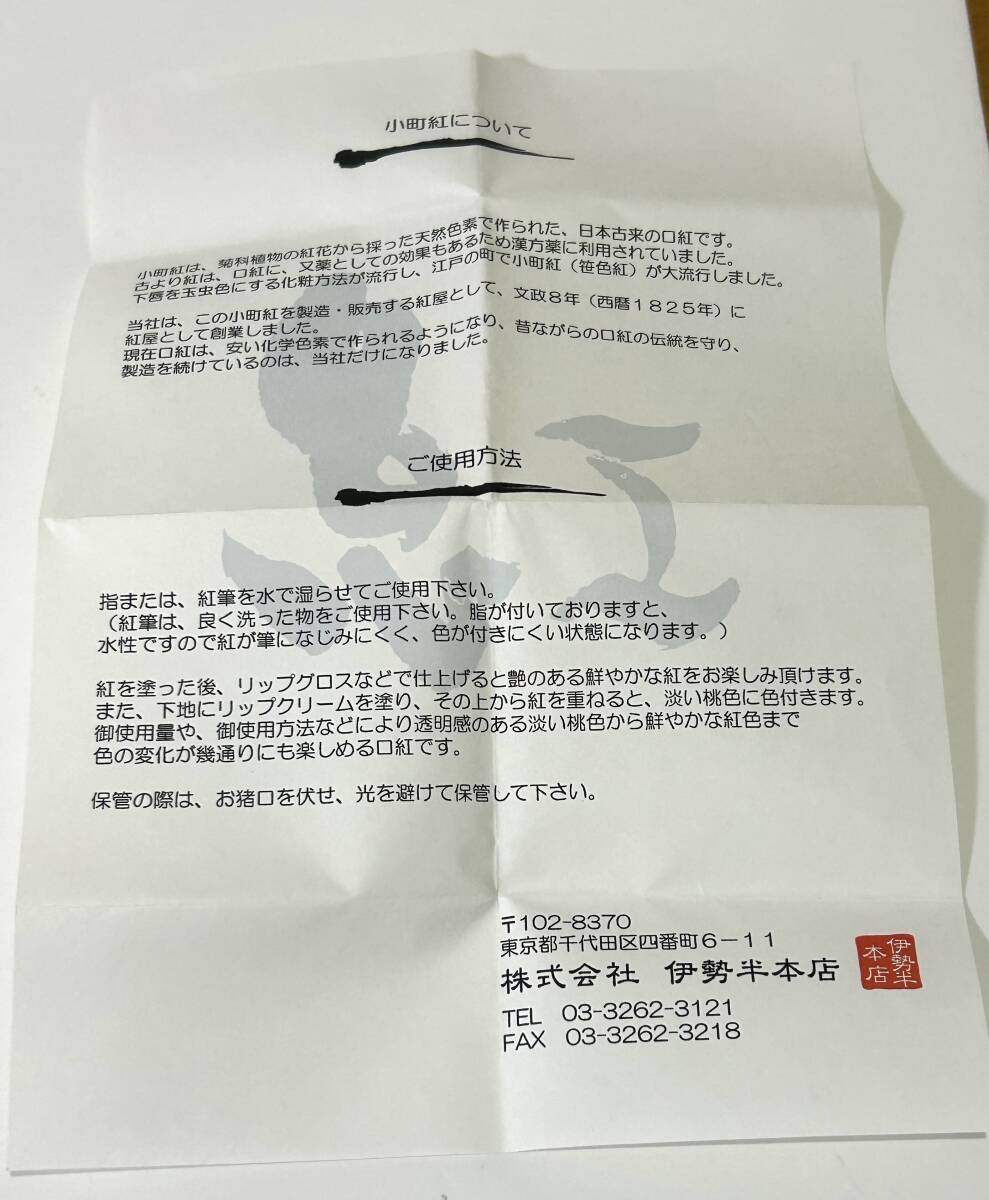 小町紅について
小町紅は、菊科植物の紅花から採った天然色素で作られた、日本古来の口紅です。
古より紅は、口紅に、又薬としての効果もあるため漢方薬に利用されていました。
下唇を玉虫色にする化粧方法が流行し、江戸の町で小町紅（笹色紅）が大流行しました。
当社は、この小町紅を製造・販売する紅屋として、文政8年（西暦1825年）に
紅屋として創業しました。
現在口紅は、安い化学色素で作られるようになり、昔ながらの口紅の伝統を守り、
製造を続けているのは、当社だけになりました。
紅
ご使用方法
指または、紅筆を水で湿らせてご使用下さい。
（紅筆は、良く洗った物をご使用下さい。脂が付いておりますと、
水性ですので紅が筆になじみにくく、色が付きにくい状態になります。）
紅を塗った後、リップグロスなどで仕上げると艶のある鮮やかな紅をお楽しみ頂けます。
また、下地にリップクリームを塗り、その上から紅を重ねると、淡い桃色に色付きます。
御使用量や、御使用方法などにより透明感のある淡い桃色から鮮やかな紅色まで
色の変化が幾通りにも楽しめる口紅です。
保管の際は、お猪口を伏せ、光を避けて保管して下さい。
〒102-8370
東京都千代田区四番町6－11
株式会社 伊勢半本店
伊勢半
本店
TEL 03-3262-3121
FAX 03-3262-3218